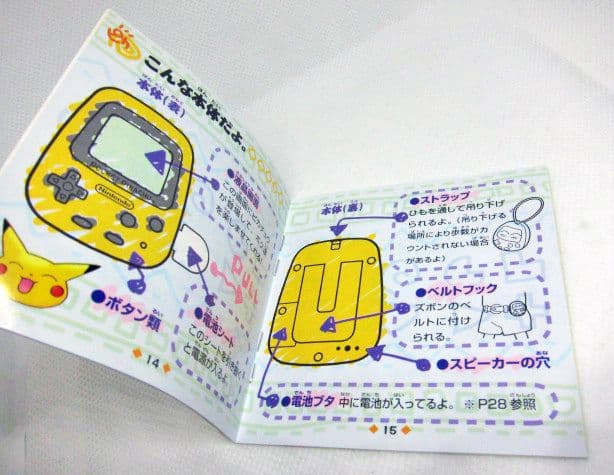 こんな本体だよ。
本体(表)
Nintendo
●液晶画面
を楽しませてくれ
PULL
●ボタン類
●電池シート
このシートを
と電源が入るよ
14
本体(裏)
●ストラップ
ひもを通して吊り下げ
られるよ。(吊り下げる
場所により歩数がカ
ウントされない場合
があるよ)
●ベルトフック
ズボンのベ
ルトに付け
られる。
●スピーカーの穴
●電池ブタ 中に電池が入ってるよ。※P28参照
15